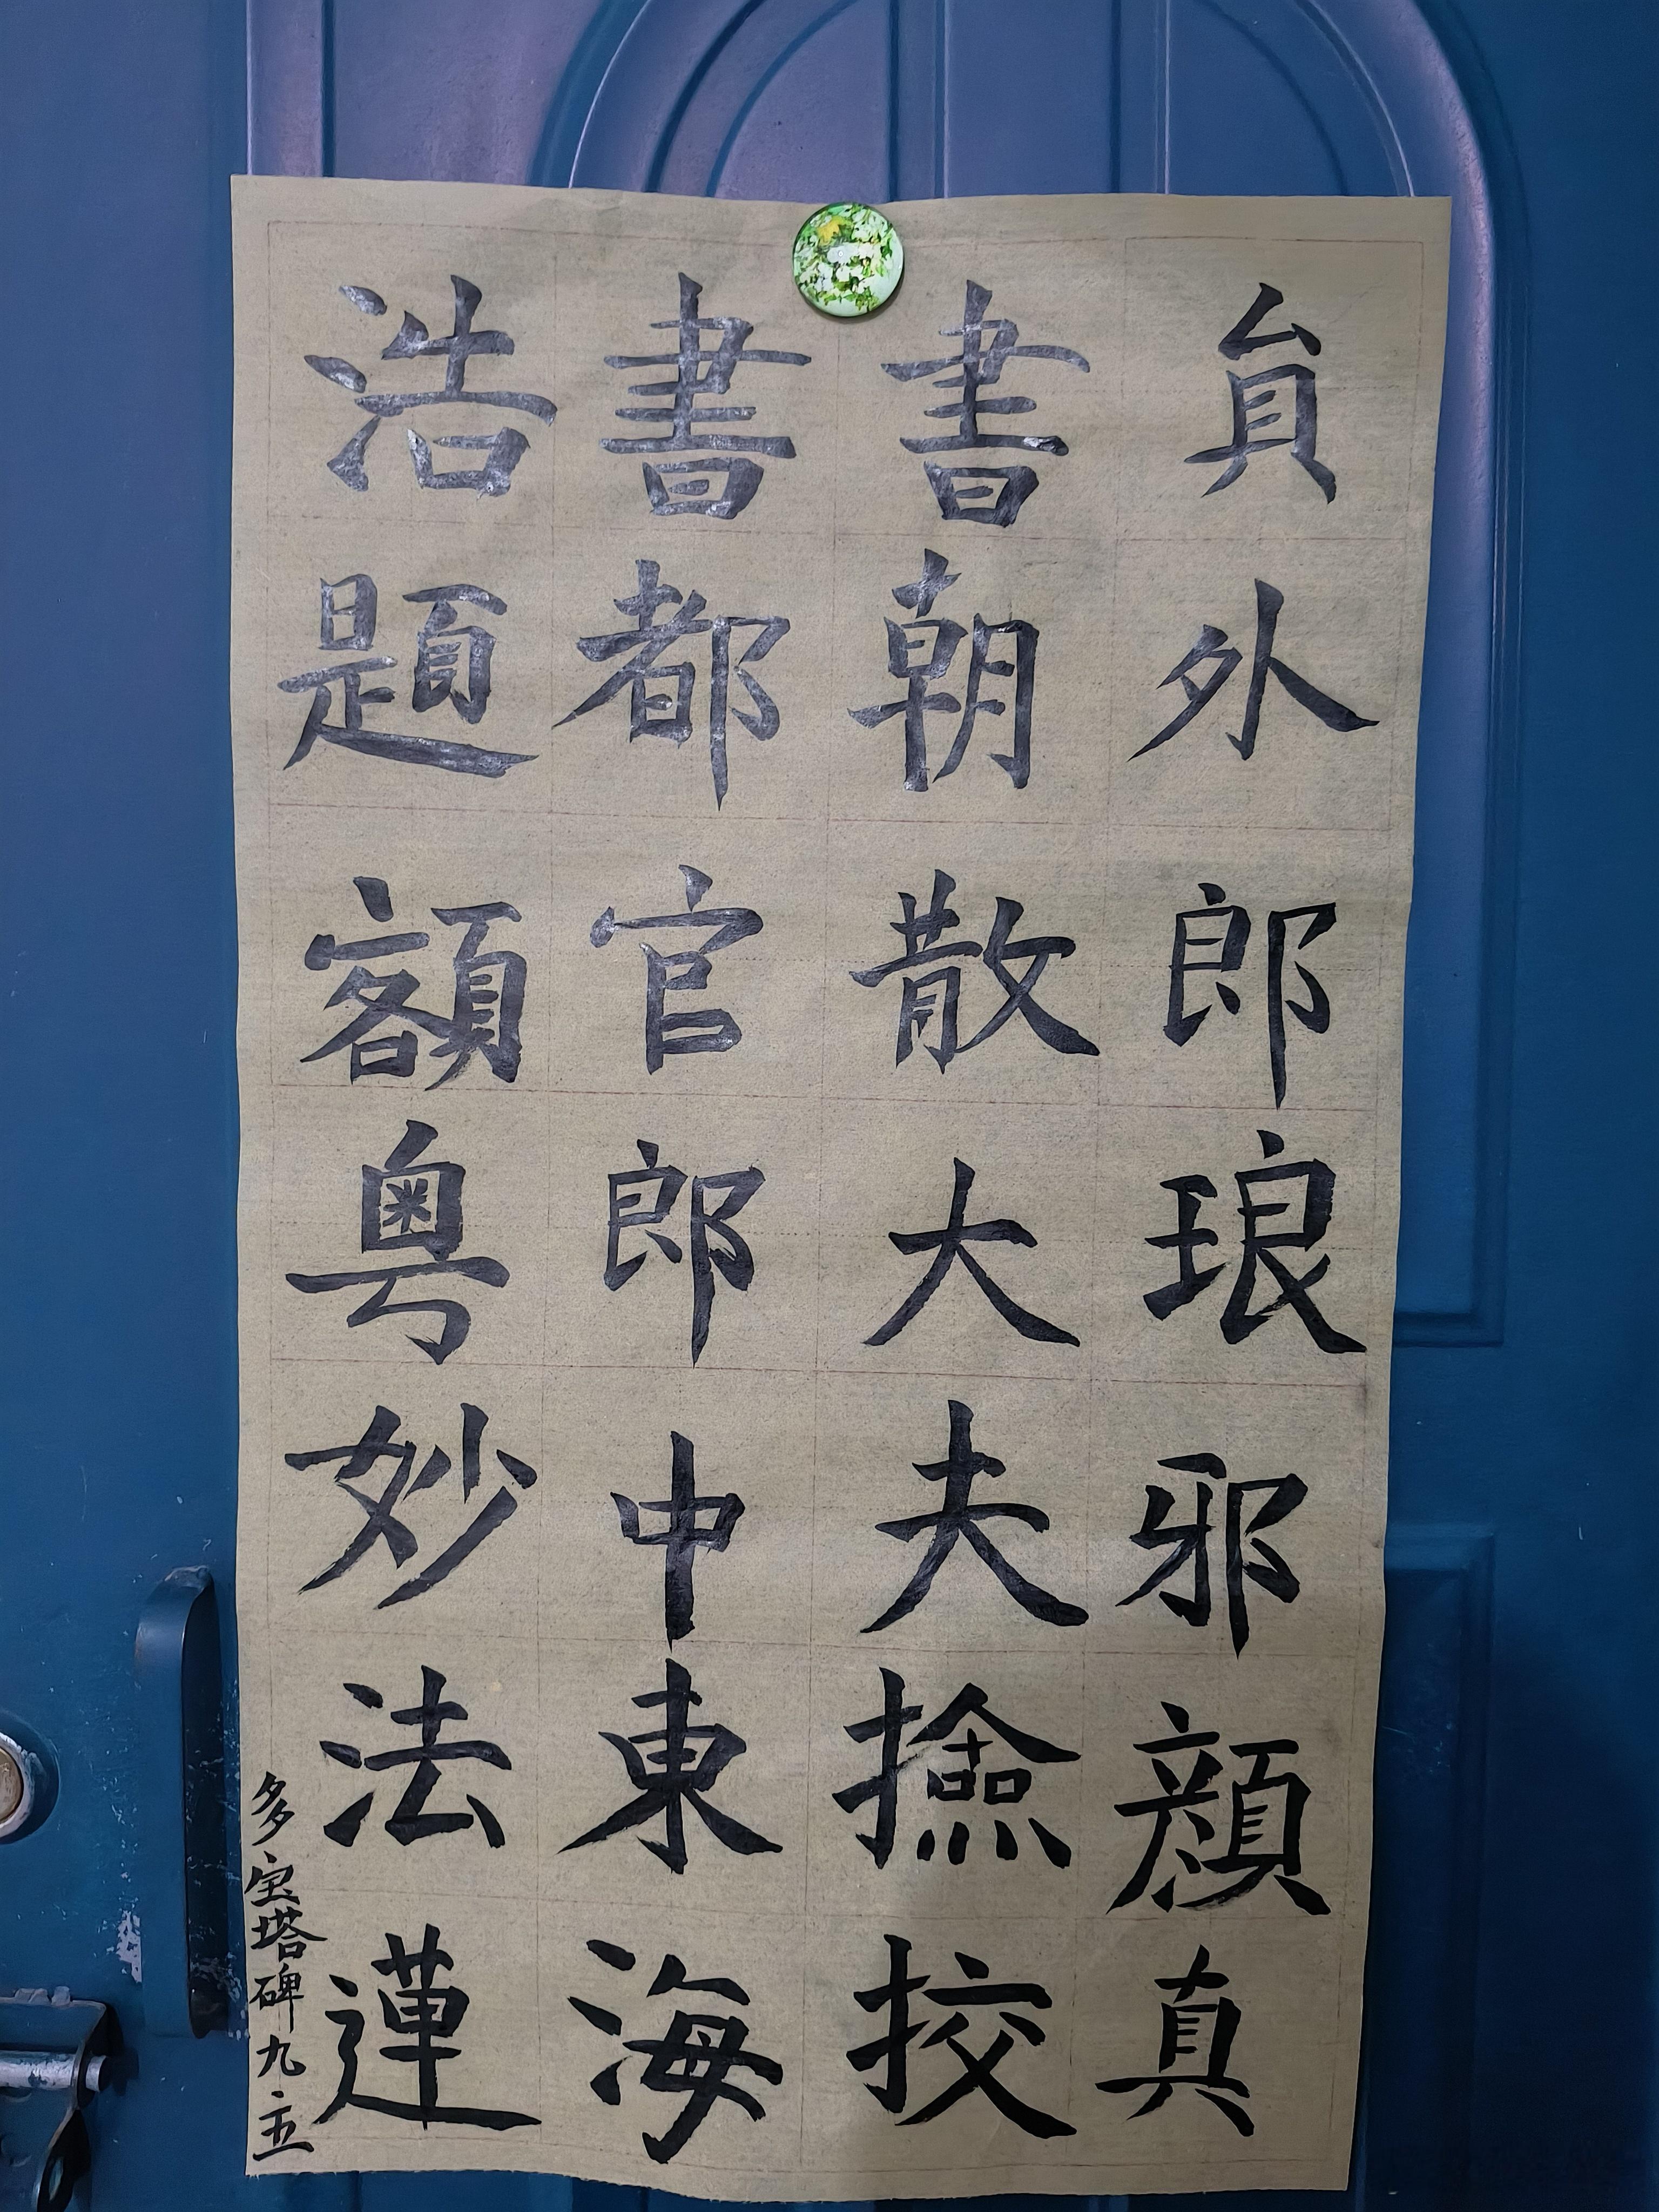 貟外郎琅邪顔真
書朝散大夫撿挍
書都官郎中東海
浩題額粤妙法蓮
多宝塔碑九.五